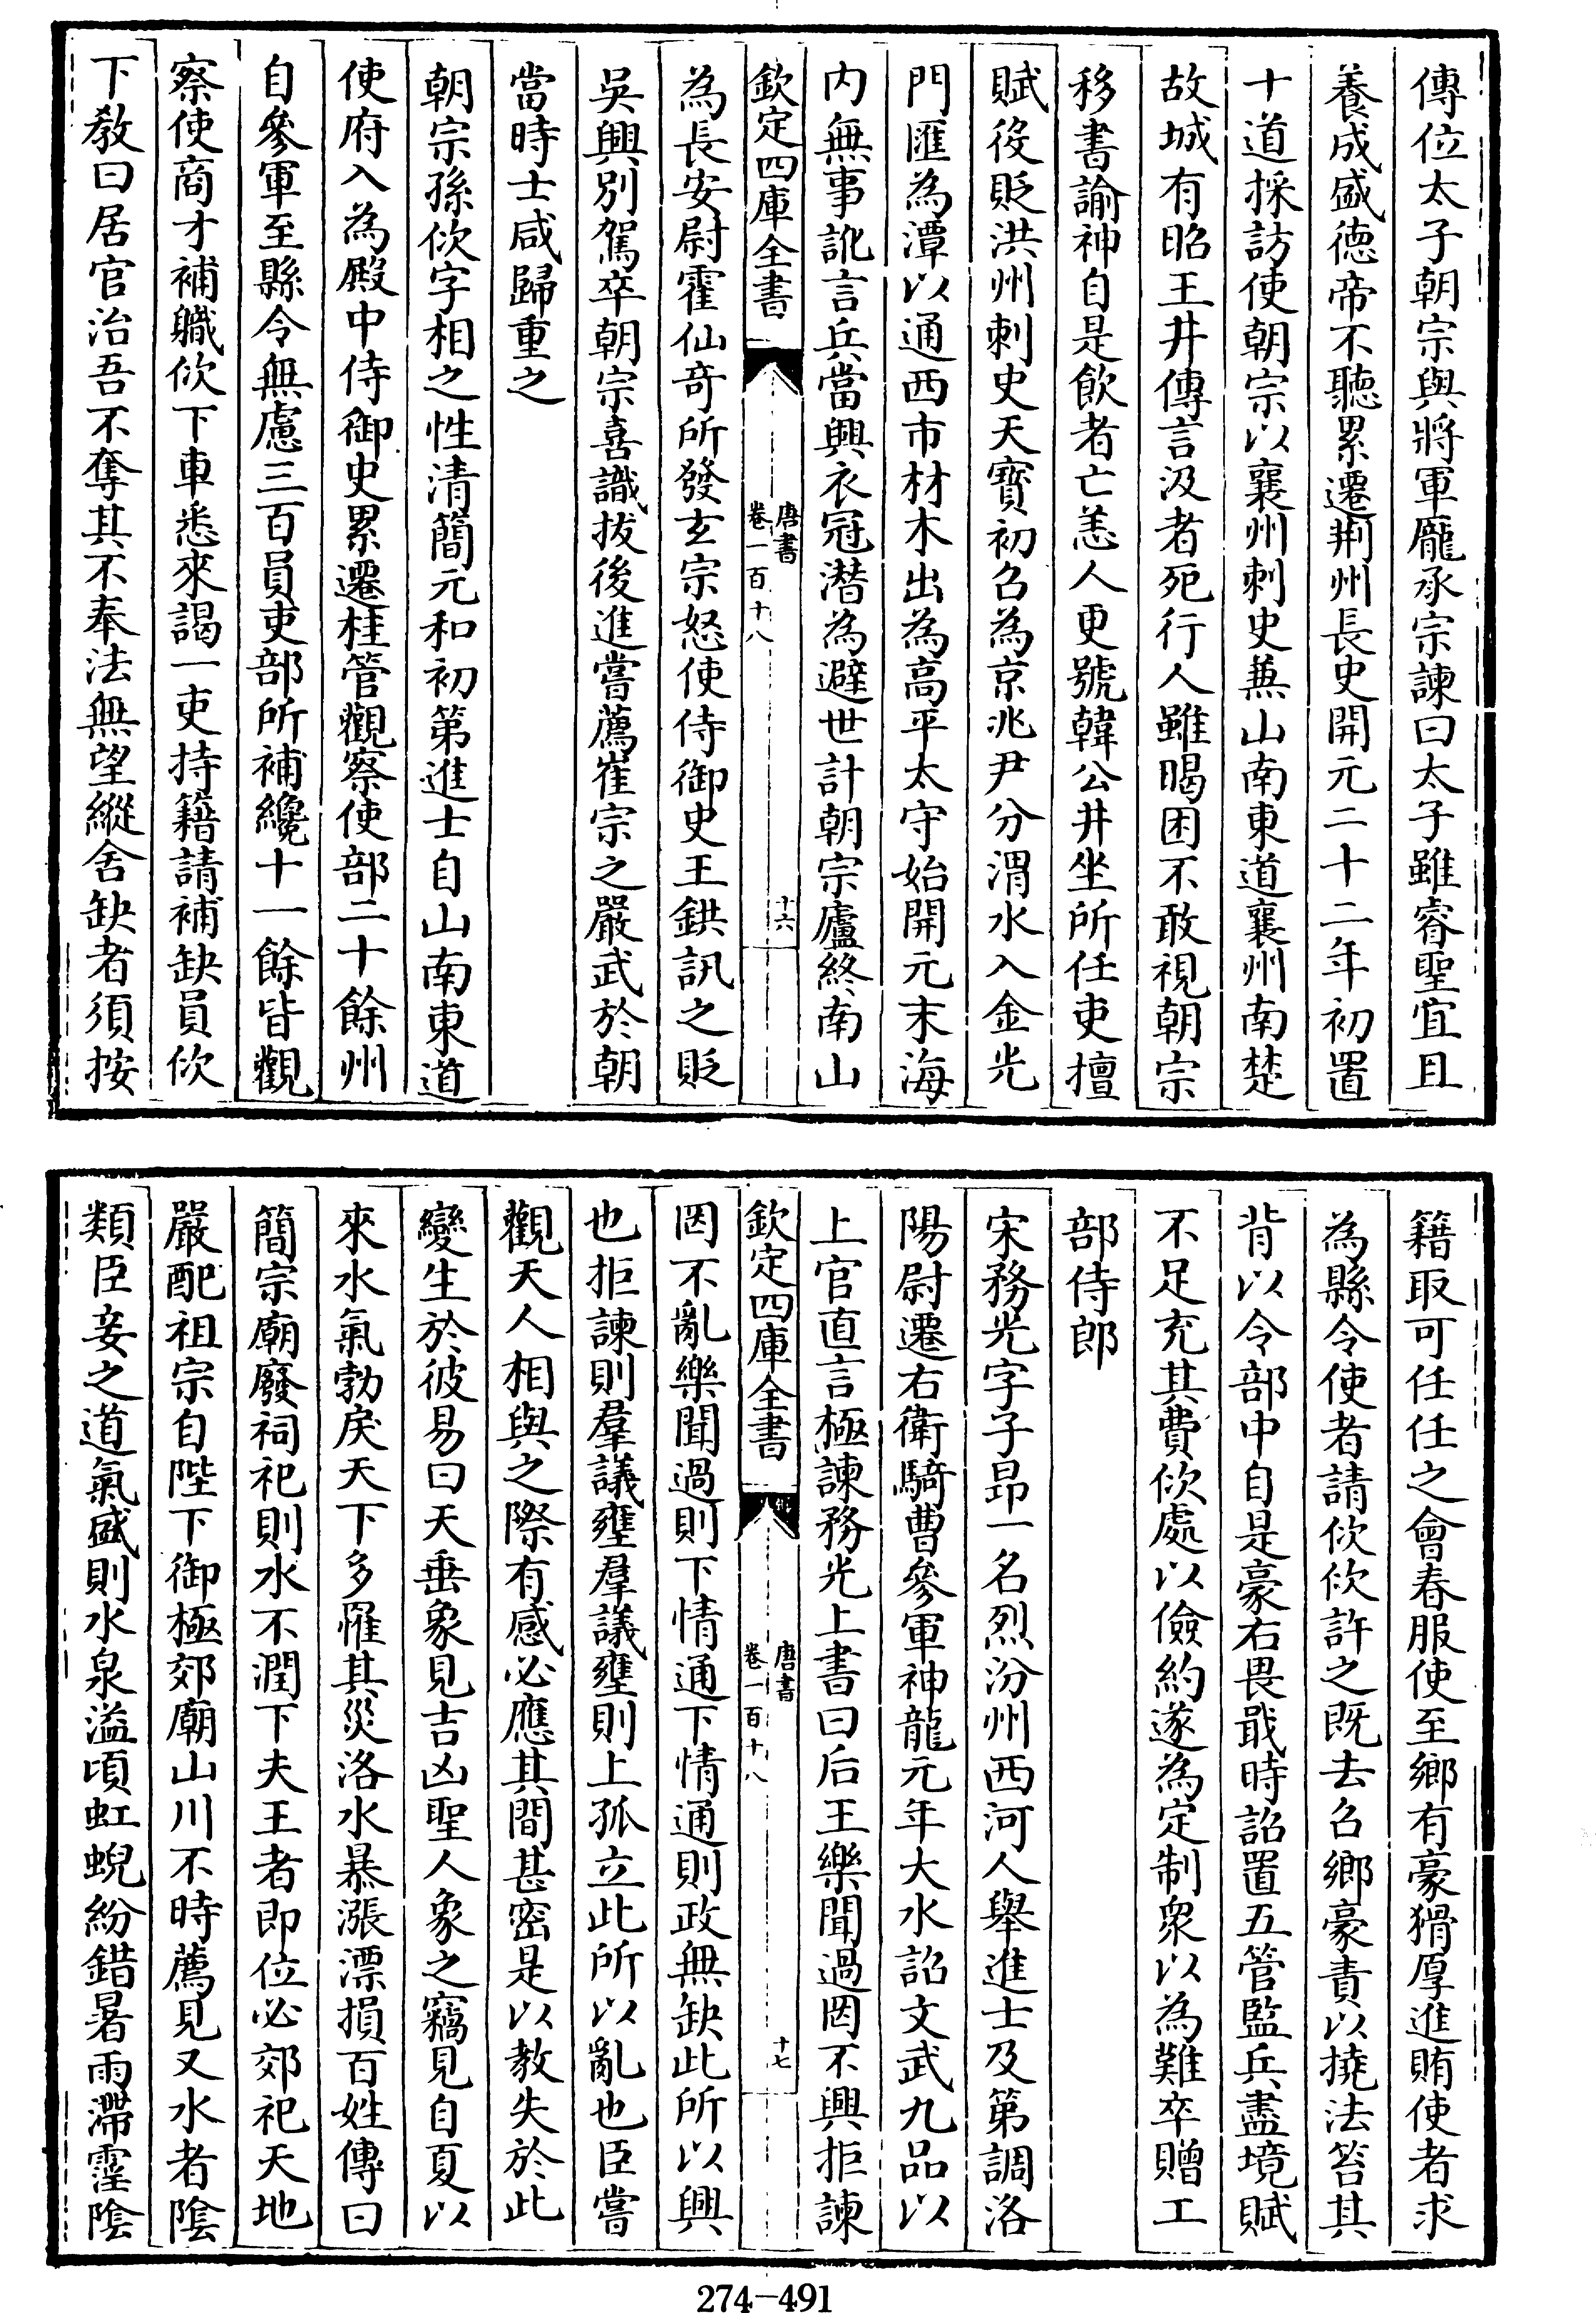 傳位太子朝宗與將軍龐承宗諫曰太子雖睿聖宜且
養成盛徳帝不聽累遷荆州長史開元二十二年初置
十道採訪使朝宗以襄州刺史兼山南東道襄州南楚
故城有昭王井傳言汲者死行人雖暍困不敢視朝宗
移書諭神自是飲者亡恙人更號韓公井坐所任吏擅
賦役貶洪州刺史天寳初召為京兆尹分渭水入金光
門匯為潭以通西市材木出為高平太守始開元末海
内無事訛言兵當興衣冠潜為避世計朝宗廬終南山
欽定四庫全書
唐書
卷一百十八
十六
為長安尉霍仙奇所發玄宗怒使侍御史王鉷訊之貶
吳興别駕卒朝宗喜識拔後進嘗薦崔宗之嚴武於朝
當時士咸歸重之
朝宗孫佽字相之性清簡元和初第進士自山南東道
使府入為殿中侍御史累遷桂管觀察使部二十餘州
自參軍至縣令無慮三百員吏部所補纔十一餘皆觀
察使商才補職佽下車悉來謁一吏持籍請補缺員佽
下教曰居官治吾不奪其不奉法無望縱舍缺者須按
籍取可任任之會春服使至鄉有豪猾厚進賄使者求
為縣令使者請佽佽許之既去召鄉豪責以撓法笞其
背以令部中自是豪右畏戢時詔置五管監兵盡境賦
不足充其費佽處以儉約遂為定制衆以為難卒贈工
部侍郎
宋務光字子昂一名烈汾州西河人舉進士及第調洛
陽尉遷右衛騎曹參軍神龍元年大水詔文武九品以
上官直言極諫務光上書曰后王樂聞過罔不興拒諫
欽定四庫全書
唐書
卷一百十八
十七
罔不亂樂聞過則下情通下情通則政無缺此所以興
也拒諫則羣議壅羣議壅則上孤立此所以亂也臣嘗
觀天人相與之際有感必應其間甚密是以教失於此
變生於彼易曰天垂象見吉凶聖人象之竊見自夏以
來水氣勃戾天下多罹其災洛水暴漲漂損百姓傳曰
簡宗廟廢祠祀則水不潤下夫王者即位必郊祀天地
嚴配祖宗自陛下御極郊廟山川不時薦見又水者隂
類臣妾之道氣盛則水泉溢頃虹蜺紛錯暑雨滯霪隂
274-491